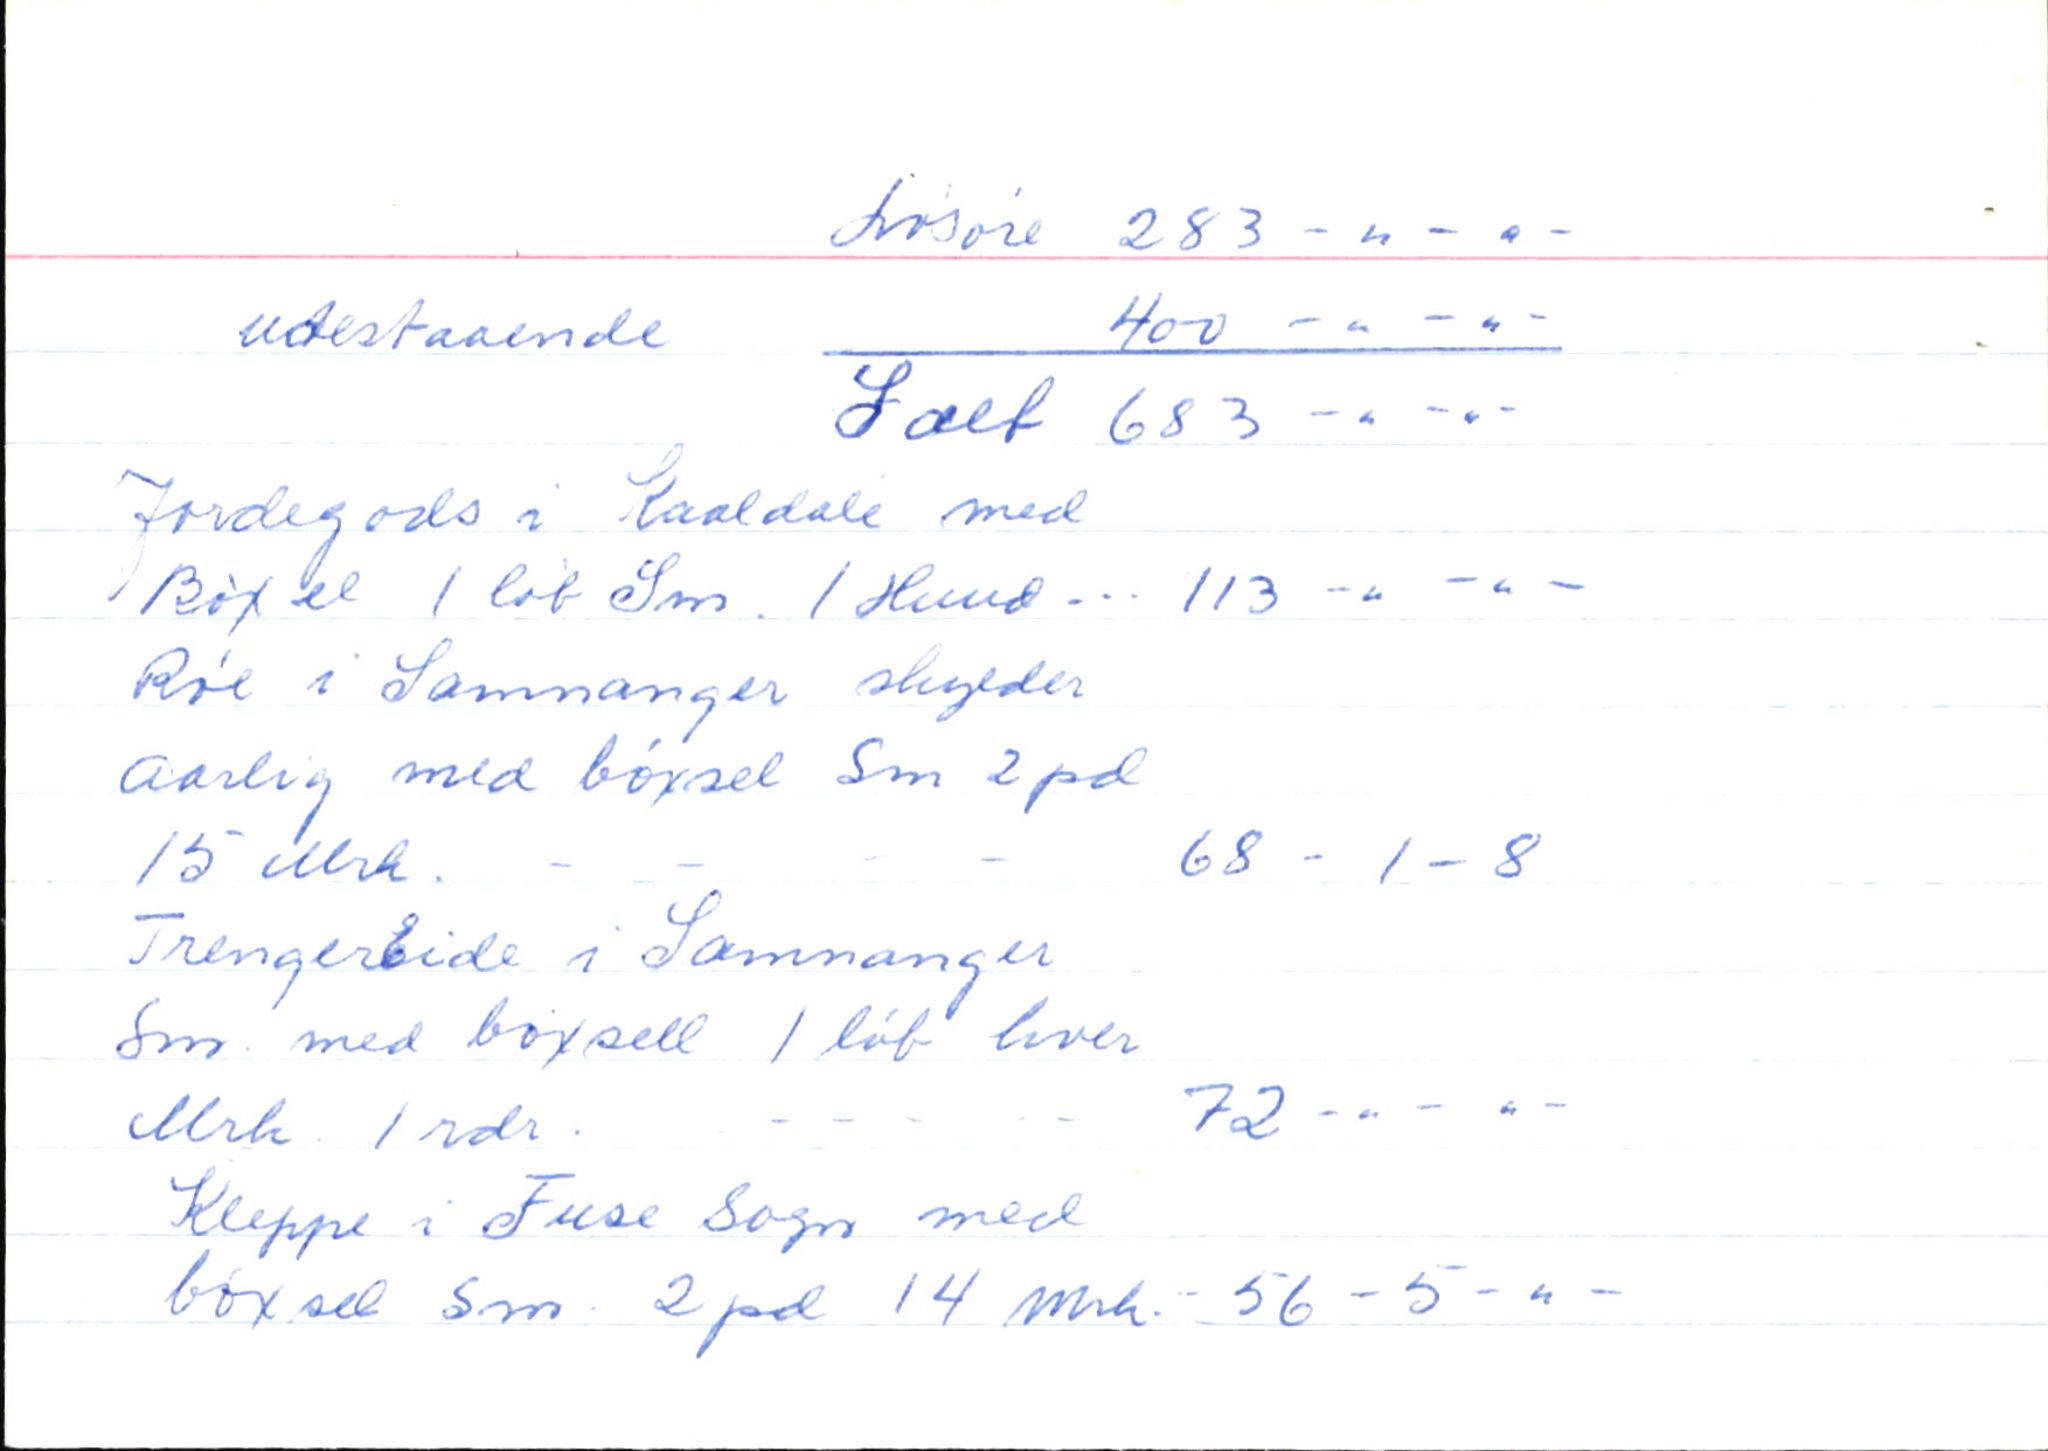 Løsøre 283 - " - " -
udestaaende 400 - " - " -
I alt 683 - " - " -
Jordegods i Kaaldale med
Bøxel 1 løb Sm. 1 Hund... 113 - " - " -
Røe i Samnanger skylder
aarlig med bøxsel Sm 2 pd
15 Mrk. - - - - 68 - 1 - 8
TrengerEide i Samnanger
Sm. med bøxsell 1 løb hver
Mrk. 1 rdr. - - - - - 72 - " - " -
Kleppe i Fuse Sogn med
bøxsel Sm. 2 pd 14 Mrk. - 56 - 5 - " -